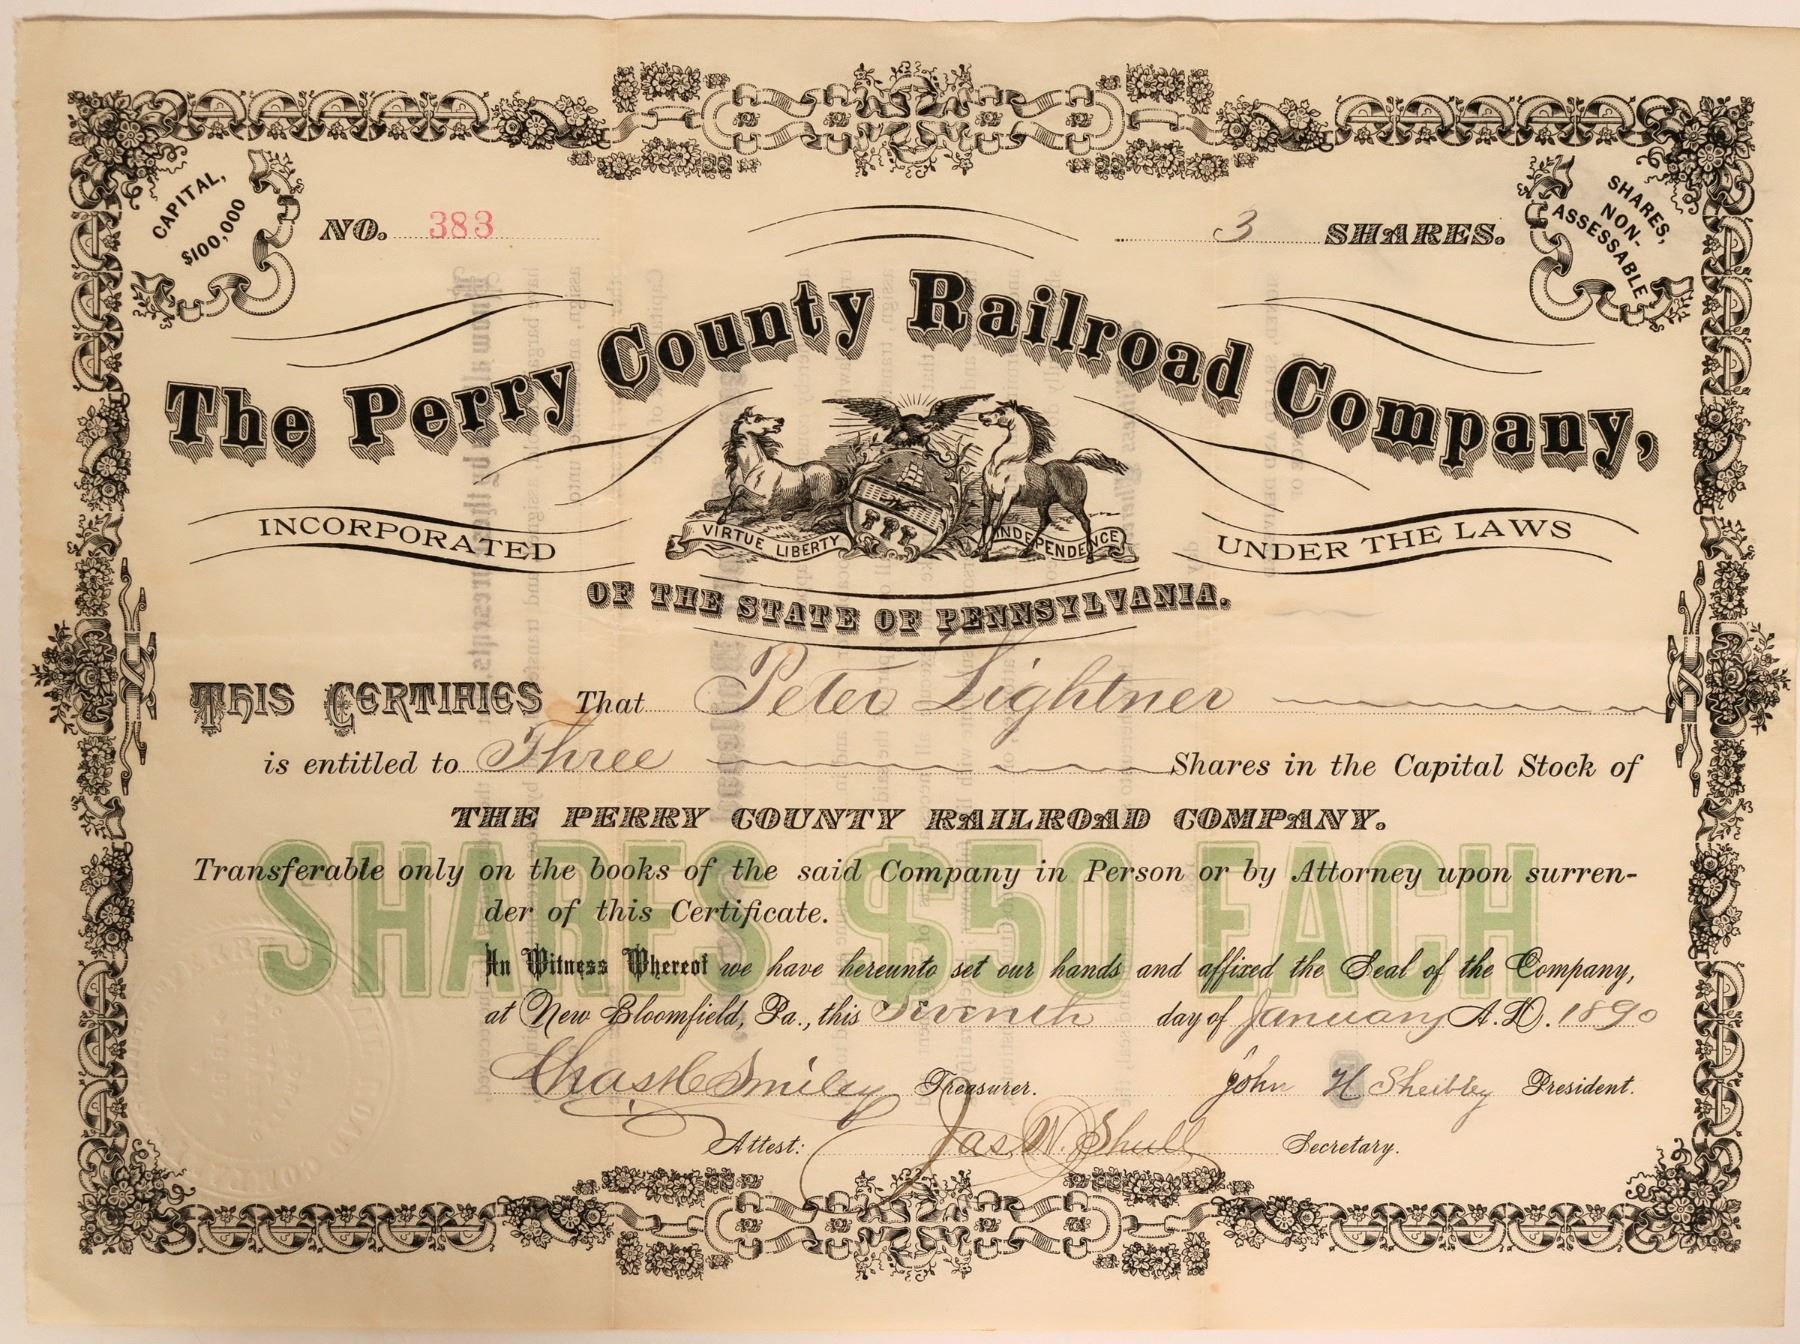 CAPITAL,
$100,000
NO. 383
3 SHARES.
SHARES,
NON-
ASSESSABLE
The Perry County Railroad Company,
VIRTUE LIBERTY INDEPENDENCE
INCORPORATED UNDER THE LAWS
OF THE STATE OF PENNSYLVANIA.
THIS CERTIFIES That Peter Lightner
is entitled to Three Shares in the Capital Stock of
THE PERRY COUNTY RAILROAD COMPANY.
SHARES $50 EACH
Transferable only on the books of the said Company in Person or by Attorney upon surren-
der of this Certificate.
In Witness Whereof we have hereunto set our hands and affixed the Seal of the Company,
at New Bloomfield, Pa., this Seventh day of January A.D. 1890
Chas H Smiley Treasurer. John H Sheibley President.
Attest: Jas W. Shull Secretary.